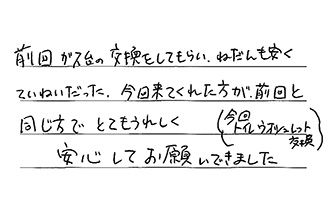 前回ガス台の交換をしてもらい、ねだんも安く
ていねいだった。今回来てくれた方が、前回と
同じ方でとてもうれしく
(今回
トイレウオシュレット
交換)
安心してお願いできました